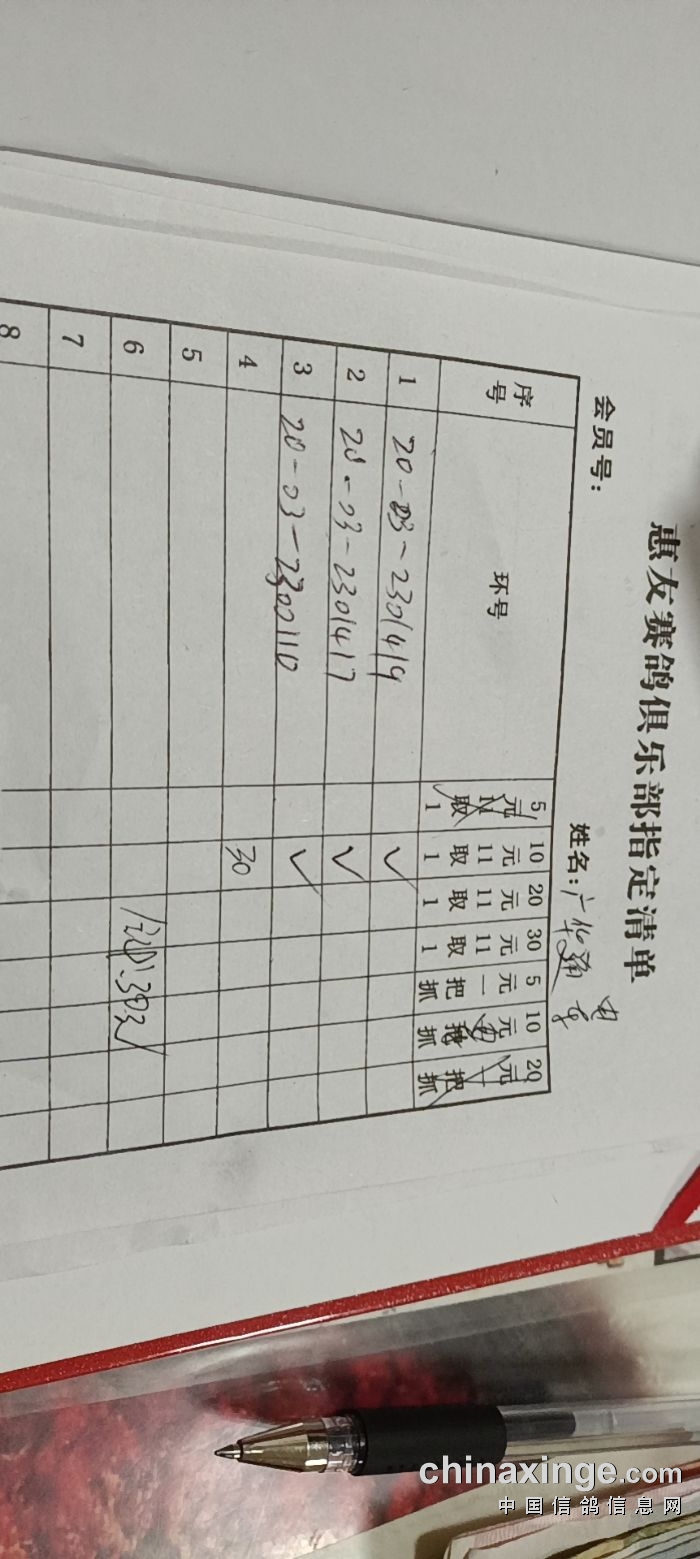 惠友赛鸽俱乐部指定清单
会员号: 姓名:
序号 环号 5元11取1 10元11取1 20元11取1 30元11取1 5元一把抓 10元 抓 20元一把抓
1 20-03-2301419 ✓
2 20-03-2301417 ✓
3 20-03-2300110 ✓
4 30
5
6
7
8
chinaxinge.com
中国信鸽信息网